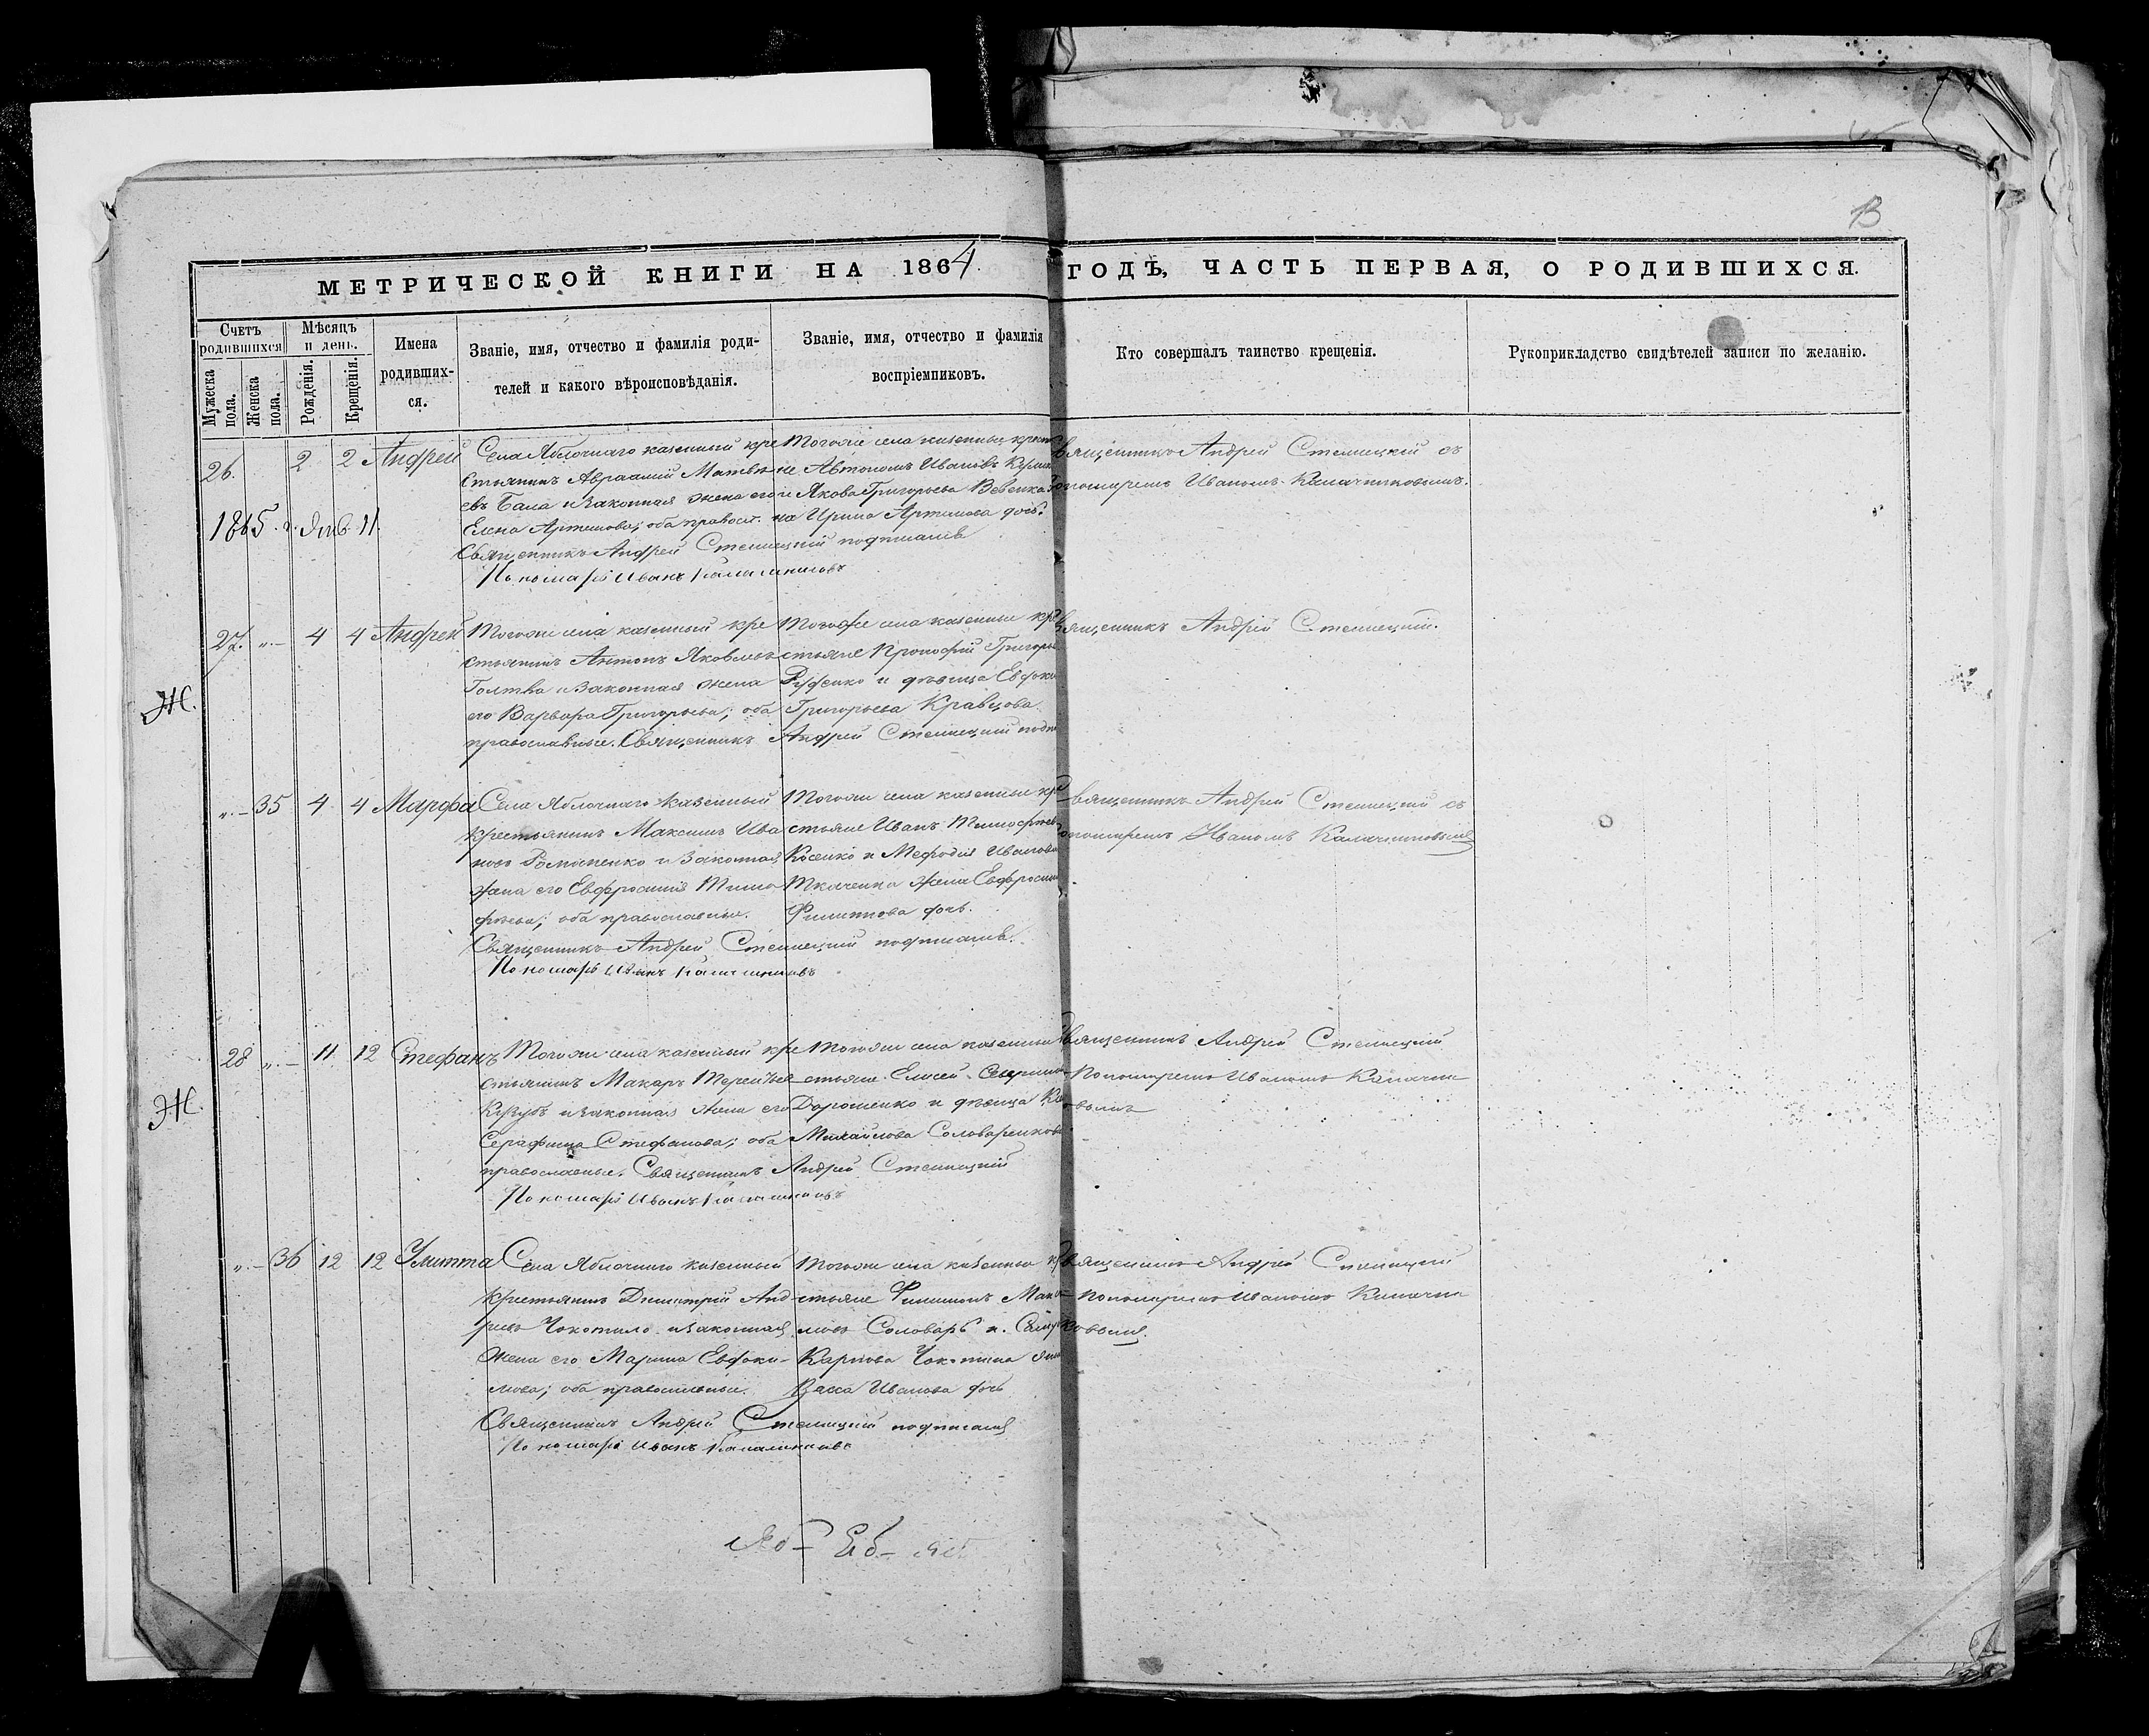 13
МЕТРИЧЕСКОЙ КНИГИ НА 1864 ГОДЪ, ЧАСТЬ ПЕРВАЯ, О РОДИВШИХСЯ.
Счетъ родившихся
Мужеска пола.
Женска пола.
Мѣсяцъ и день.
Рожденія.
Крещенія.
Имена родивших-ся.
Званіе, имя, отчество и фамилія роди-
телей и какого вѣроисповѣданія.
Званіе, имя, отчество и фамилія
воспріемниковъ.
Кто совершалъ таинство крещенія.
Рукоприкладство свидѣтелей записи по желанію.
26. 2 2 Андрей
Села Яблочнаго казенный кре
стьянинъ Авраамій Матвѣ
евъ Бала и законная жена его
Елена Артемова; оба правосл.
Священникъ Андрей Стеницкій подписалъ
Пономарь Иванъ Калашниковъ
1865. г. Янв. 11.
Тогоже села казенные крест
не Автономъ Ивановъ
и Якова Григорьева
на Ирина Артемова дочь.
Священникъ Андрей Стеницкій съ
пономаремъ Иваномъ Калашниковымъ.
27. „.— 4 4 Андрей
Тогоже села казенный кре
стьянинъ Антонъ Яковлевъ
Голтва и законная жена
его Варвара Григорьева; оба
православные. Священникъ Андрей Стеницкій подп
Тогоже села казенные кре
стьяне Прокофій Григорь
Руденко и дѣвица Евдоки
Григорьева Кравцова.
Священникъ Андрей Стеницкій.
Ж.
„.— 35 4 4 Марфа
Села Яблочнаго казенный
крестьянинъ Максимъ Ива
новъ Романенко и законная
жена его Евфросинія Тимо
фѣева; оба православные.
Священникъ Андрей Стеницкій подписалъ.
Пономарь Иванъ Калашниковъ
Тогоже села казенные кре
стьяне Иванъ Тимофѣевъ
Косенко и Мефодія Иванова
Ткаченка жена Евфросин
Филиппова дочь.
Священникъ Андрей Стеницкій съ
пономаремъ Иваномъ Калашниковымъ
28 „.— 11. 12 Стефанъ
Тогоже села казенный кре
стьянинъ Макаръ Терентьев
и законная жена его
Серафима Стефанова; оба
православные. Священникъ Андрей Стеницкій
Пономарь Иванъ Калашниковъ
Тогоже села казенные
стьяне Елисей
Дорошенко и дѣвица
Михайлова Солваренкова
Священникъ Андрей Стеницкій
Пономаремъ Иваномъ Калашни
ковымъ
Ж.
„.— 36 12 12 Улитта
Села Яблочнаго казенный
крестьянинъ Димитрій Анд
реевъ Чокотило и законная
жена его Марина Евдоки-
мова; оба православные.
Священникъ Андрей Стеницкій подписалъ
Пономарь Иванъ Калашниковъ
Тогоже села казенные кр
стьяне Филимонъ Макси
мовъ Соловарь и
Карпова Чокотила жена
Васса Иванова дочь
Священникъ Андрей Стеницкій
Пономаремъ Иваномъ Калашни
ковымъ.